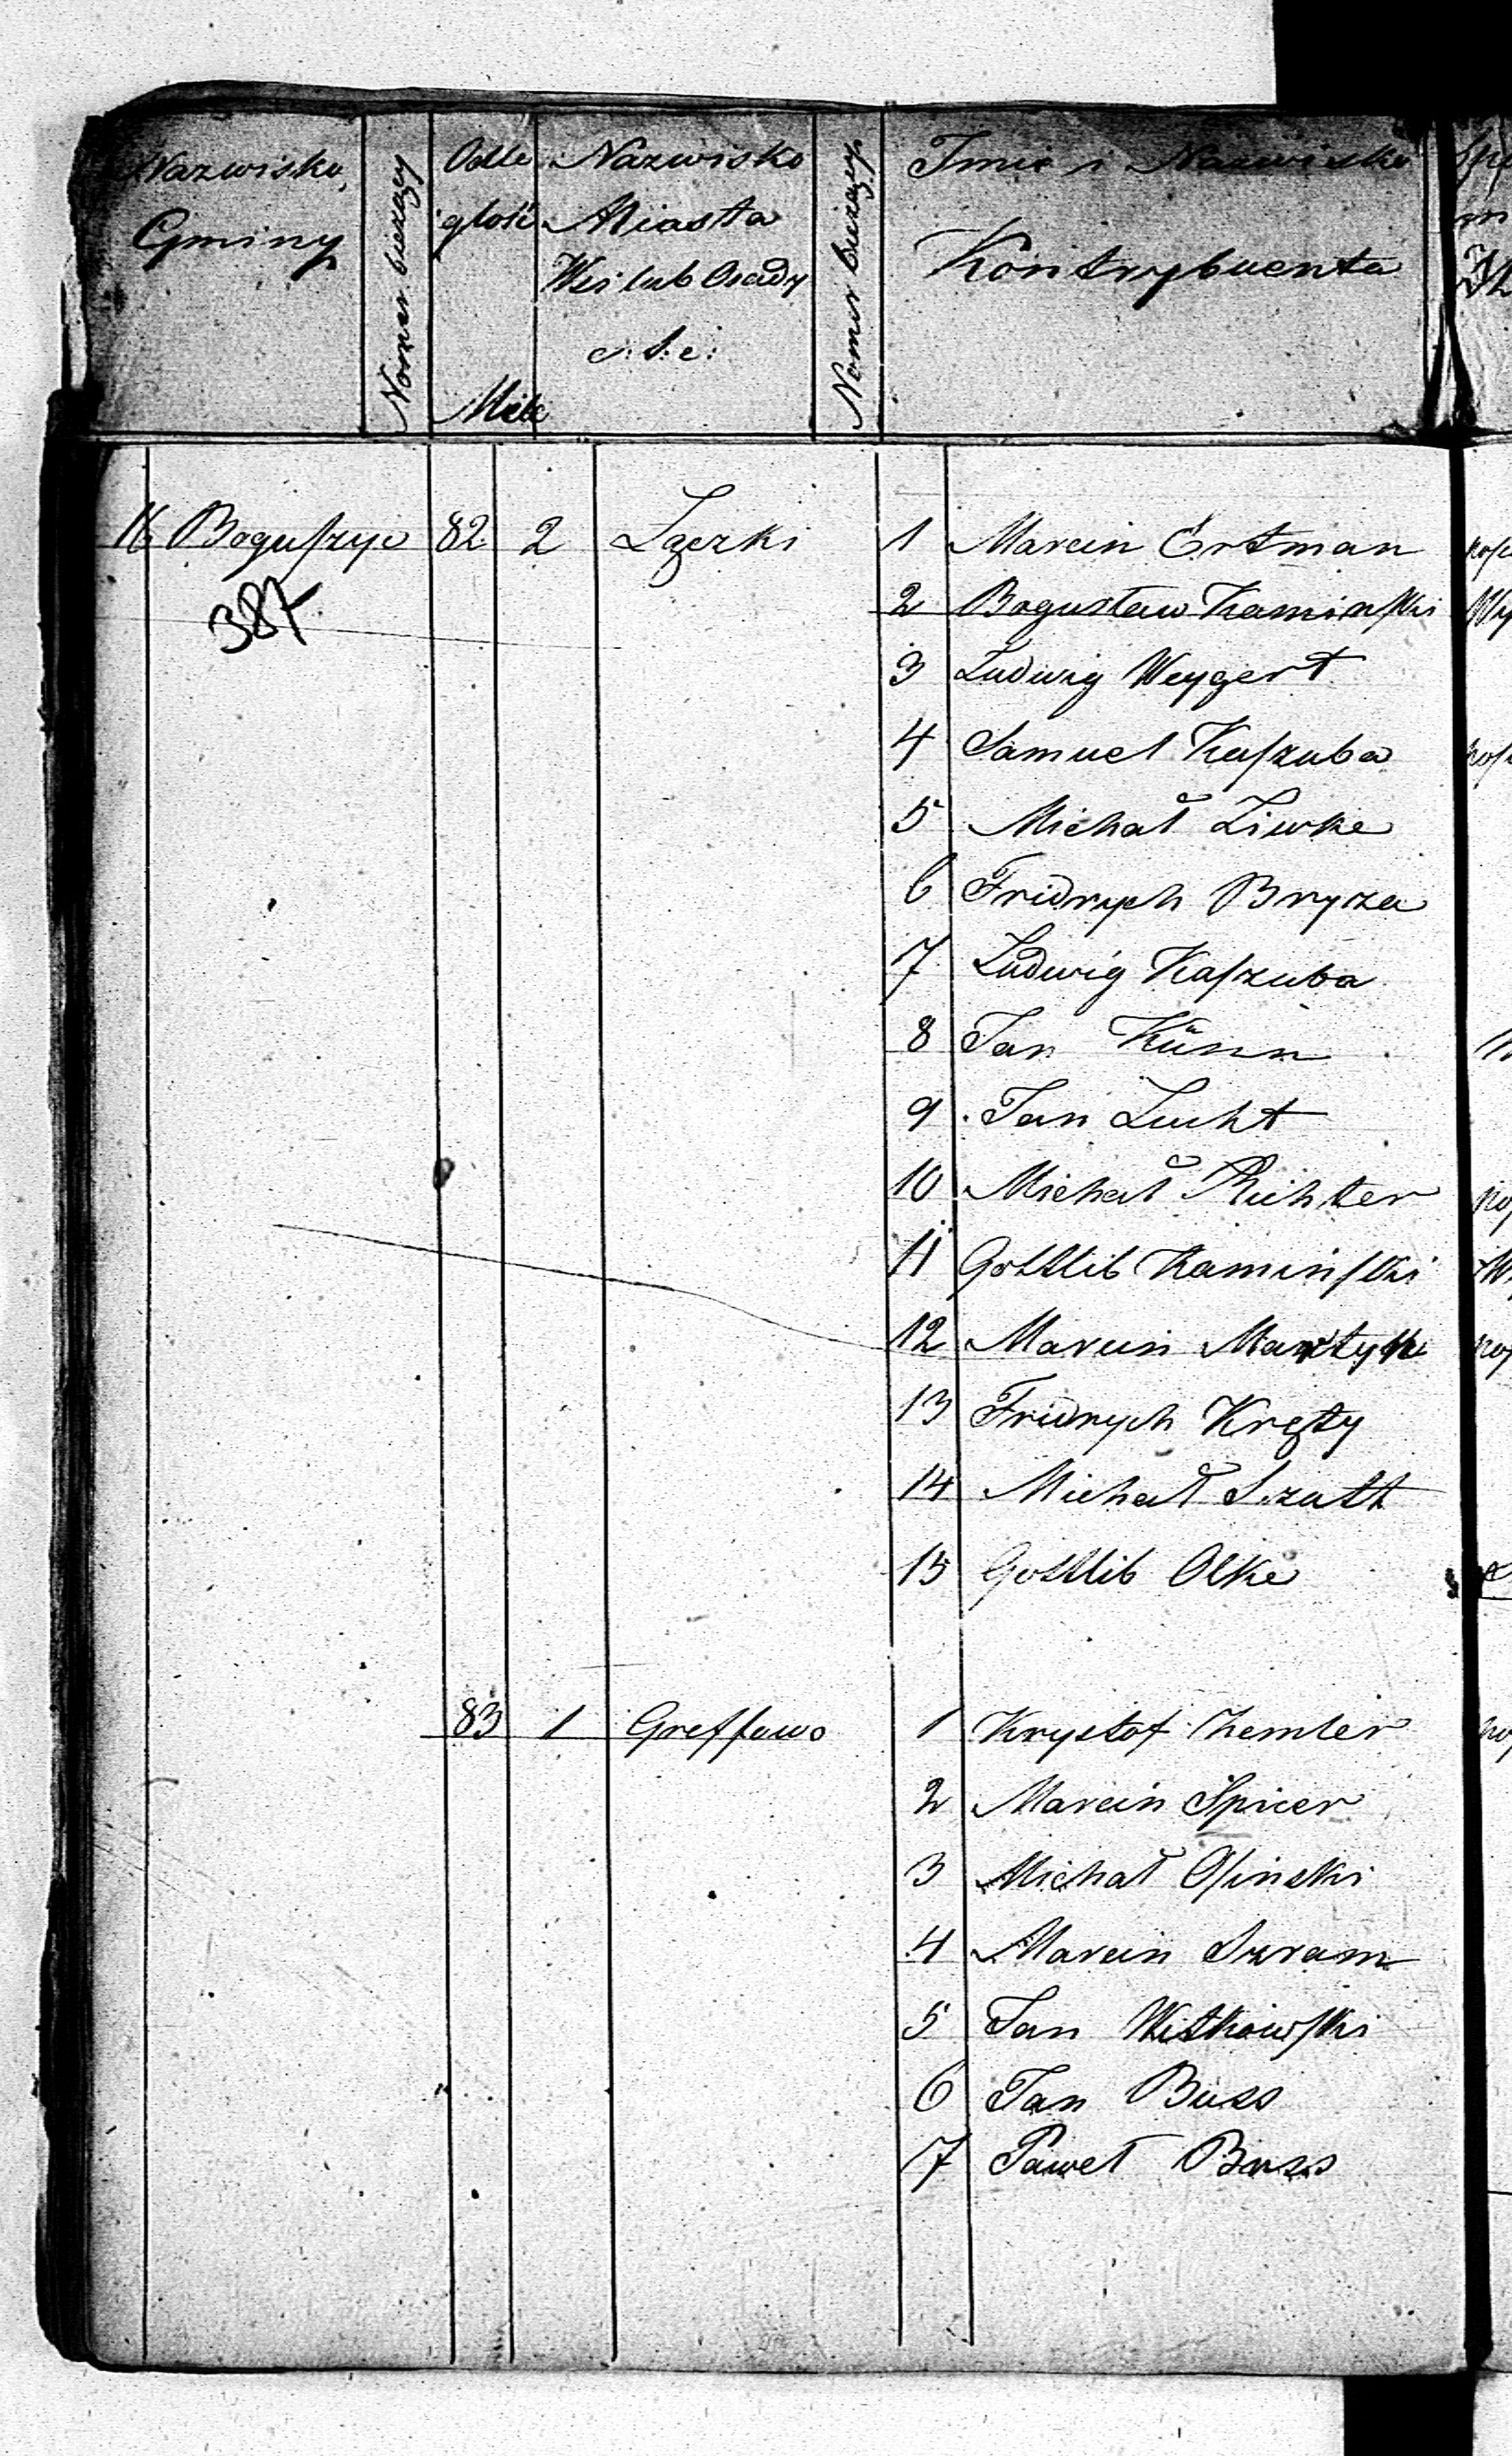 Nazwisko Gminy
Nomer bieżący
Odle głość Mile
Nazwisko Miasta Wsi lub Osady e: t: c:
Nomer bieżący
Imie i Nazwisko Kontrybuenta
16 Boguſzyc 82 2 Łączki 1 Marcin Ertman
387
2 Bogusław Kaminſki
3 Ludwig Weygert
4 Samuel Kaſzuba
5 Michał Liwke
6 Fridrych Bryza
7 Ludwig Kaſzuba
8 Jan Künn
9 Jan Lucht
10 Michał Richter
11 Gottlib Kaminſki
12 Marcin
13 Fridrych Kręty
14 Michał Szatt
15 Gottlib Olke
83 1 1 Krystof Hemler
2 Marcin Spicer
3 Michał Oſinski
4 Marcin Szram
5 Jan Witkowſki
6 Jan Buss
7 Paweł Buss